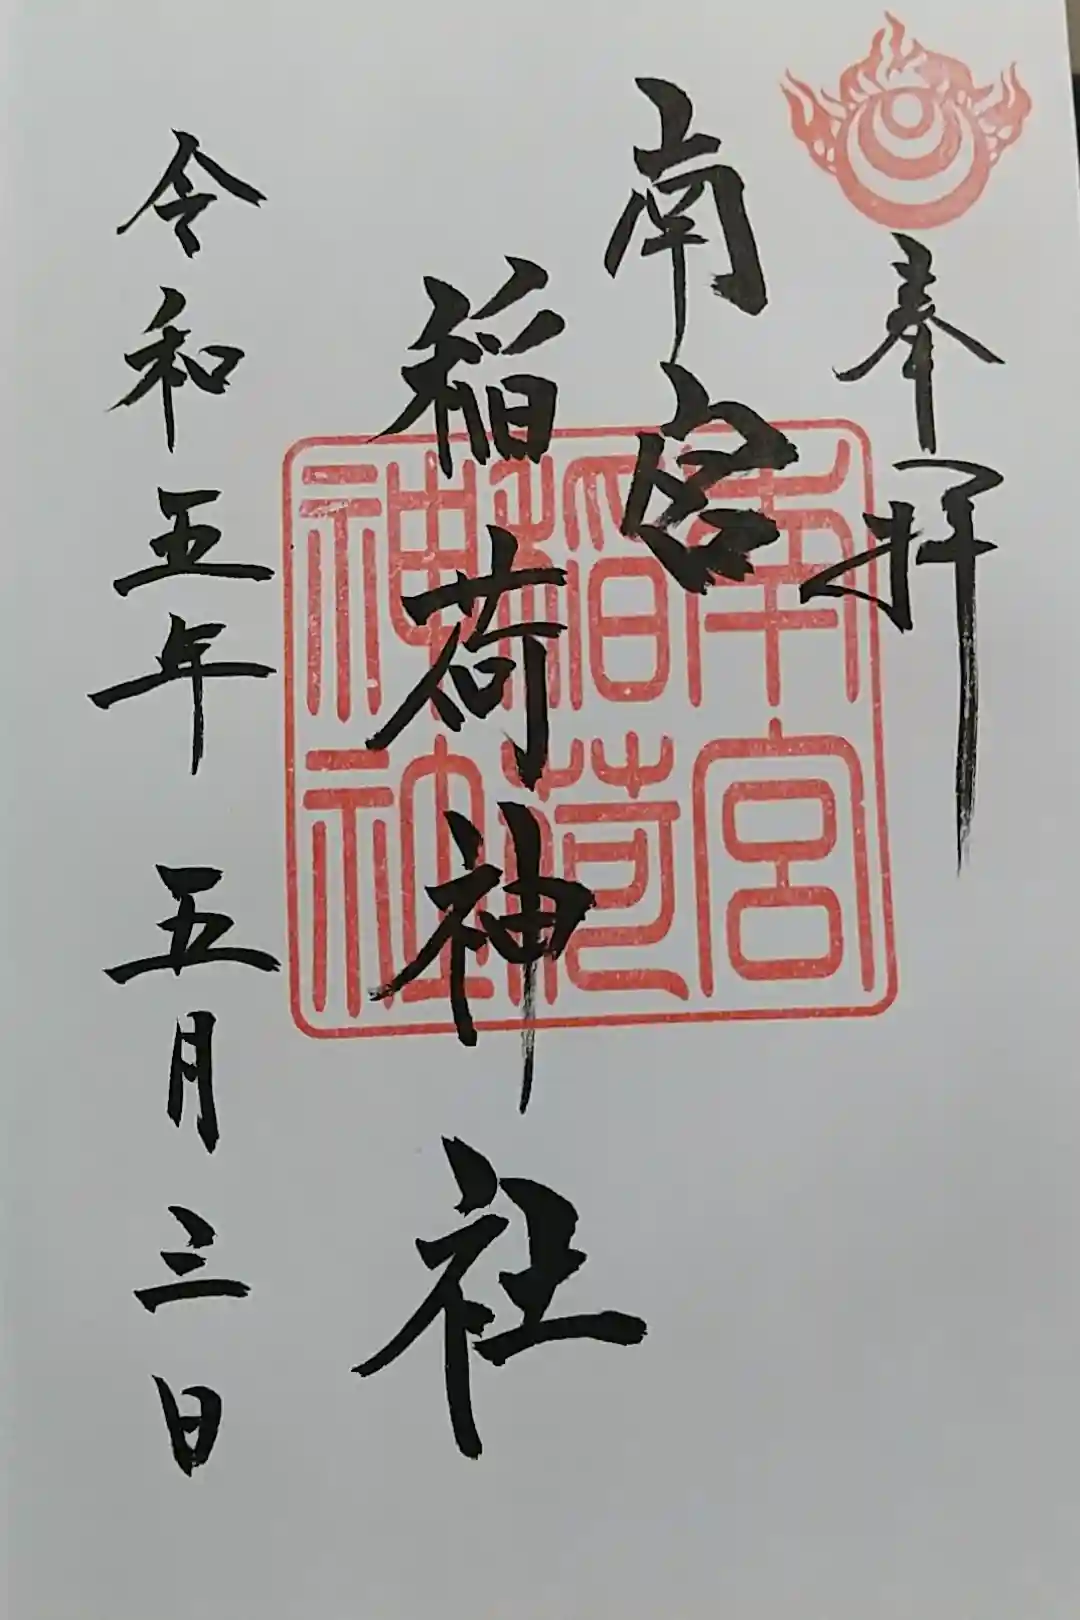 奉拝
南宮
稲荷神社
令和五年 五月三日
南宮
稲荷
神社